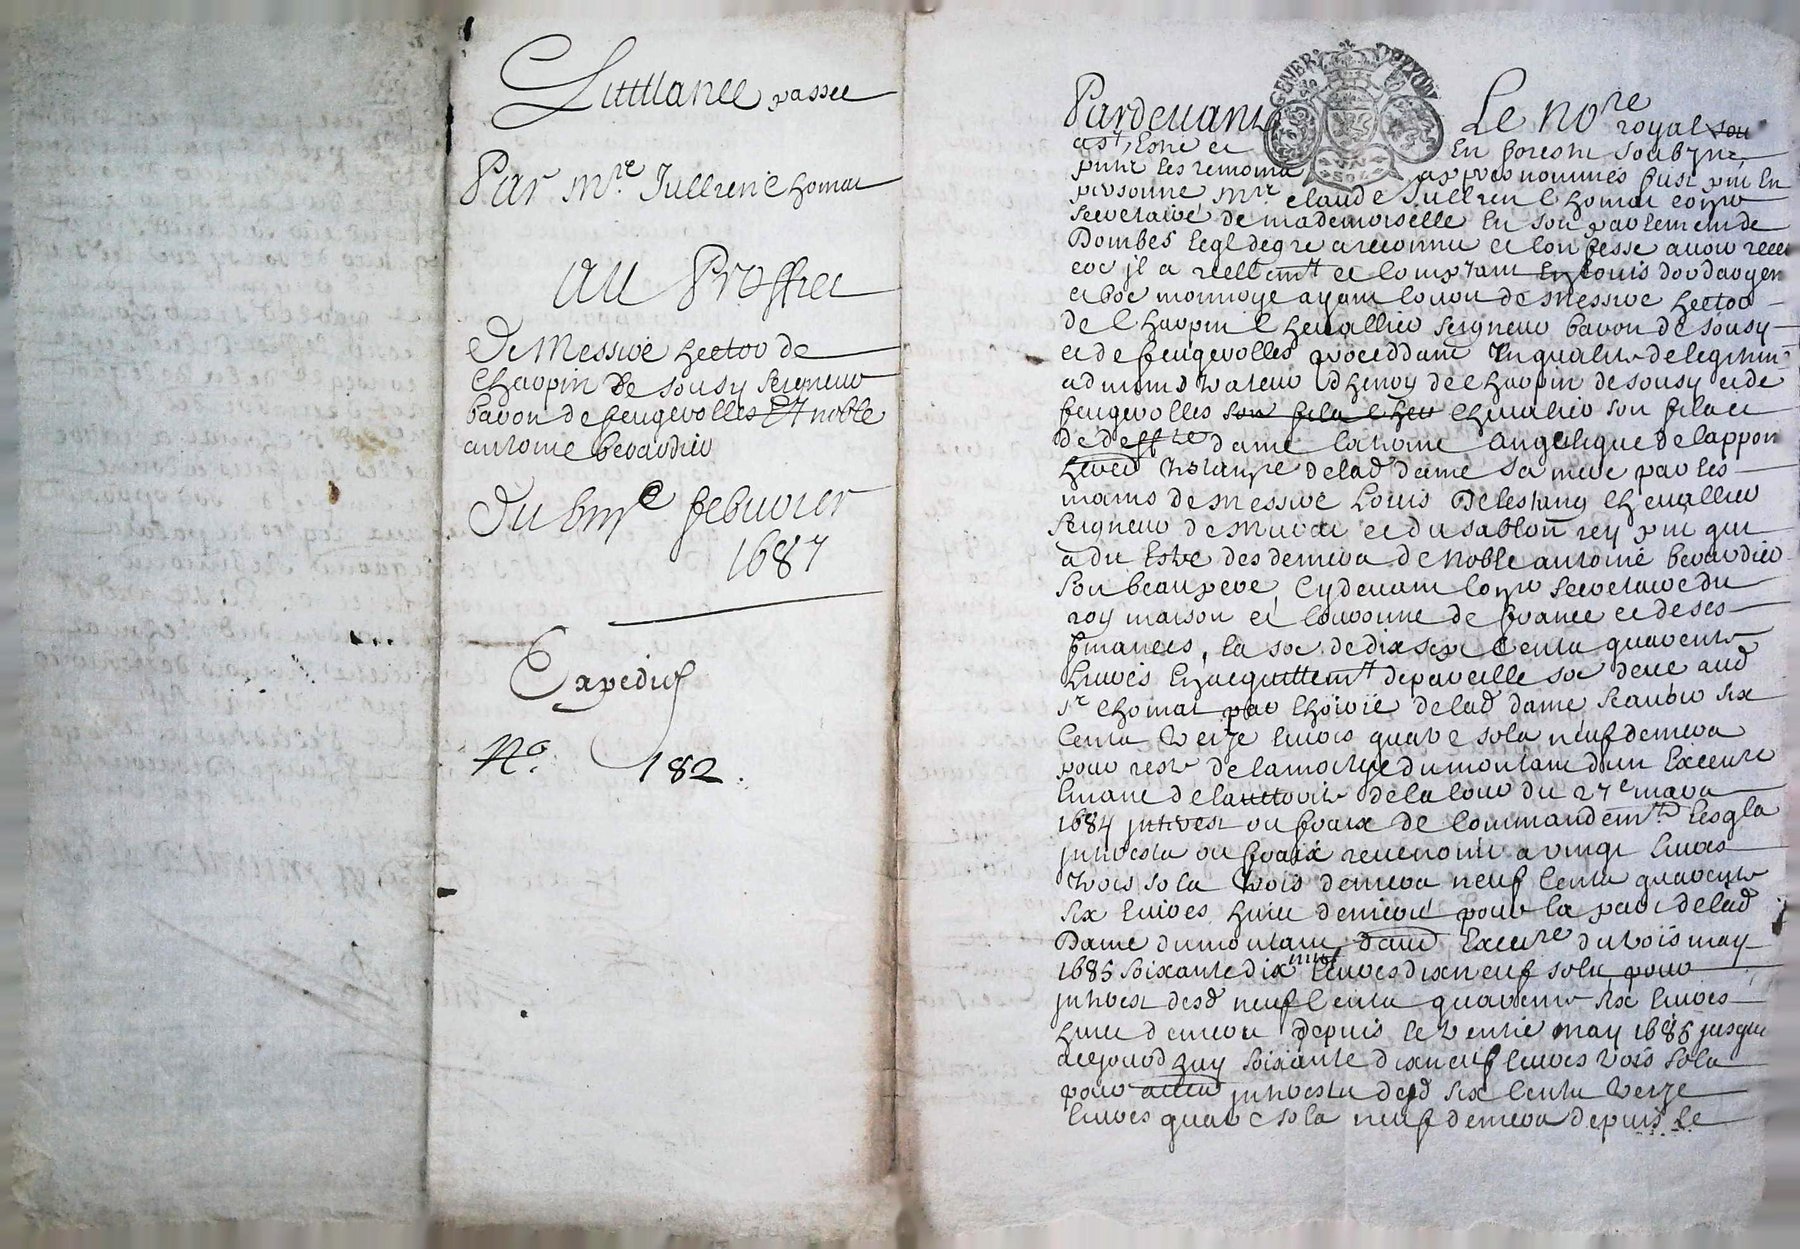 Quittance passee
Par mre Jullien Chomat
au Proffict
De Messire hector de
Charpin de Sousy Seigneur
baron de feugerolles Et noble
antoine berardier
Du febvrier
1687
Expedié
No. 182.
GENER
Pardevant Le nore royal
En forestz soubzne
presentz les temoins apres nommes fust pnt En
personne mre Claude Jullien Chomat conser
Secretaire de mademoiselle En son parlement de
Dombes leql de gre a reconnu et confesse avoir receu
comptant En Louis dor dargen
monnoye ayant cours de Messire hector
de Charpin Chevallier Seigneur baron de Sousy
et de feugerolles proceddant En qualite de legitime
administrateur dhenry de Charpin de Sousy et de
feugerolles Chevalier son filz et
de deffte dame Catherine angelique de lappon
de lad dame Sa mere par les
mains de Messire Louis Delestang Chevallier
Seigneur de et du Sablon icy pnt qui
a dit Estre des deniers de Noble antoine berardier
Son beaupere, Cydevant Conser Secretaire du
roy maison et couronne de france et de ses
finances, la soe de dix sept Centz quarente
livres En acquittemt de pareille soe deue aud
Sr Chomat par lhoirie de lad dame Scavoir six
Centz treize livres quatre solz neuf deniers
pour reste de la moitye du montant dun Execure
Emane de lauttorite de la Cour du 27e marz
1684 ou fraix de Commandemt Lesqlz
ou fraix revenants a vingt livres
trois solz trois deniers neuf Centz quarente
six livres huict deniers pour la part de lad
Dame du montant daud Execure du trois may
1685 Soixante dix neuf Livres dix neuf solz pour
jnterest desd neuf Centz quarente six livres
huict deniers depuis le trentie may 1685 jusques
aujourdhuy Soixante dix neuf livres trois solz
pour jnterestz desd six Centz treize
livres quatre solz neuf deniers depuis Le